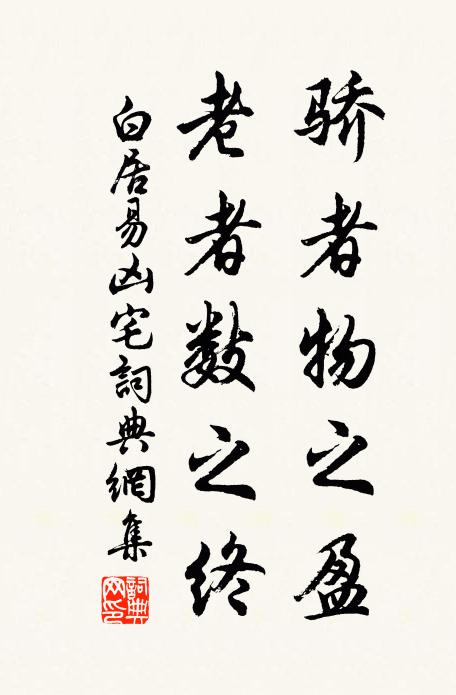 骄者物之盈
老者数之终
白居易凶宅詞典網集
詞典網印